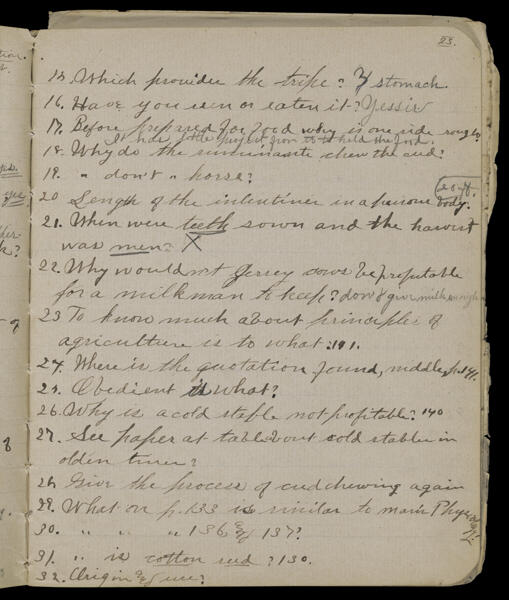 23.
15. Which provides the tripe? 3/4 stomach.
16. Have you seen or eaten it? Yessir
17. Before prepared for food why is one side rough?
It has little project from it to hold the food.
18. Why do the ruminants chew the cud?
19. " don't " horse?
20 Length of the intestines in a person's body.
21. When were teeth sown and the harvest
was men? X
22. Why wouldn't Jersey cows be profitable
for a milkman to keep? don't give milk enough
23. To know much about principles of
agriculture is to what? 141.
24. Where is the quotation found, middle p. 141.
25. Obedient is what?
26. Why is a cold stable not profitable? 140
27. See paper at table about cold stables in
olden times?
28. Give the process of cud chewing again
29. What on p. 133 is similar to man's Phys
30. " " " 136 & 137?
31. " is cotton seed? 130.
32. Origin & use?